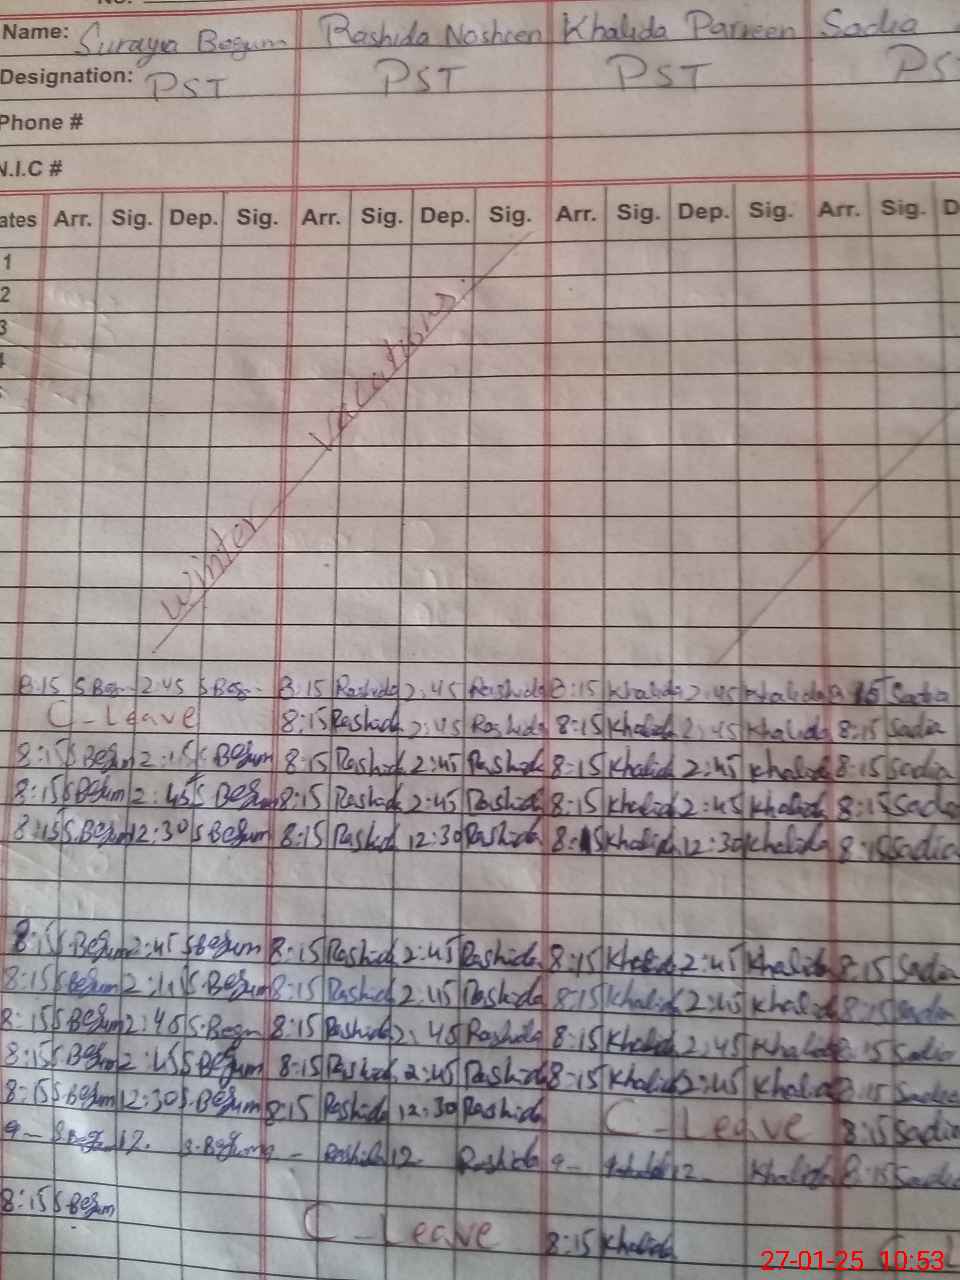 Name: Suraya Begum Rashida Nosheen Khalida Parveen Sadia
Designation: PST PST PST PS
Phone #
N.I.C #
ates Arr. Sig. Dep. Sig. Arr. Sig. Dep. Sig. Arr. Sig. Dep. Sig. Arr. Sig. D
1
2
3
4
Winter Vacations.
8:15 S Beg 2:45 S Beg 8:15 Rashida 2:45 Rashida 8:15 Khalida 2:45 Khalida 8:15 Sadia
C-Leave 8:15 Rashid 2:45 Rashida 8:15 Khalid 2:45 Khalida 8:15 Sadia
8:15 S Begum 2:45 S Begum 8:15 Rashid 2:45 Rashid 8:15 Khalid 2:45 Khalid 8:15 Sadia
8:15 S Begum 2:45 S Begum 8:15 Rashid 2:45 Rashid 8:15 Khalid 2:45 Khalid 8:15 Sadia
8:15 S Begum 12:30 S Begum 8:15 Rashid 12:30 Rashida 8:15 Khalid 12:30 Khalida 8:15 Sadia
8:15 S Begum 2:45 S Begum 8:15 Rashid 2:45 Rashida 8:15 Khalid 2:45 Khalida 8:15 Sadia
8:15 S Begum 2:45 S Begum 8:15 Rashid 2:45 Rashida 8:15 Khalid 2:45 Khalid 8:15 Sadia
8:15 S Begum 2:45 S. Begum 8:15 Rashid 2:45 Rashida 8:15 Khalid 2:45 Khalid 8:15 Sadia
8:15 S Begum 2:45 S Begum 8:15 Rashid 2:45 Rashid 8:15 Khalid 2:45 Khalid 8:15 Sadia
8:15 S Begum 12:30 S. Begum 8:15 Rashid 12:30 Rashid C-Leave 8:15 Sadia
9- S Begum 12. S. Begum 9- Rashid 12. Rashida 9- 12- Khalida 8:15 Sadia
8:15 S Begum C-Leave 8:15 Khalid C L
27-01-25 10:53